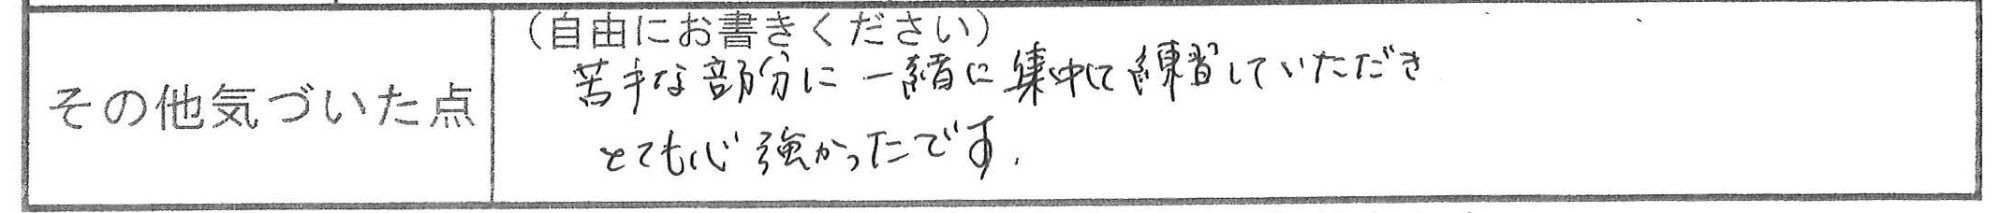 その他気づいた点
(自由にお書きください)
苦手な部分に一緒に集中して練習していただき
とても心強かったです.